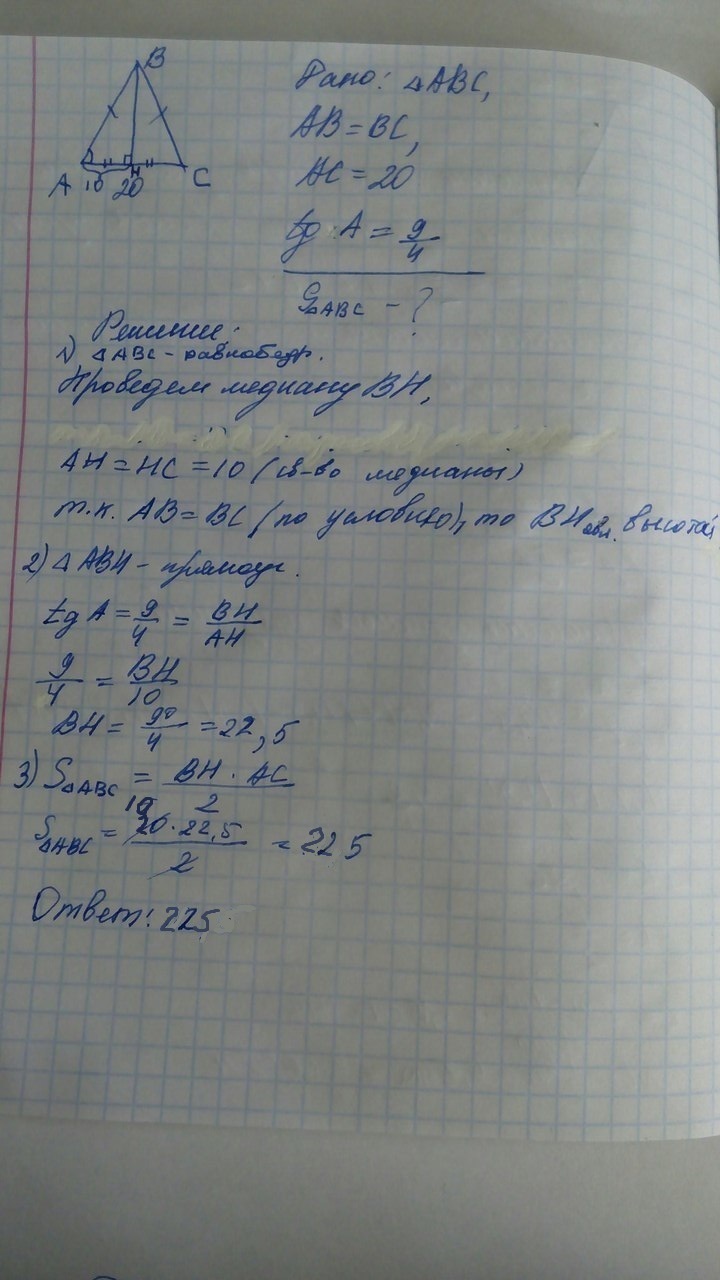 B
A 10 20 H C
Дано: △ABC,
AB = BC,
AC = 20
tg A = 9/4
S△ABC - ?
Решение:
1) △ABC - равнобедр.
Проведем медиану BH,
AH = HC = 10 (св-во медианы)
т.к. AB = BC (по условию), то BH явл. высотой
2) △ABH - прямоуг.
tg A = 9/4 = BH/AH
9/4 = BH/10
BH = 90/4 = 22,5
3) S△ABC = BH · AC / 2
10
S△ABC = 20 · 22,5 / 2 = 225
Ответ: 225